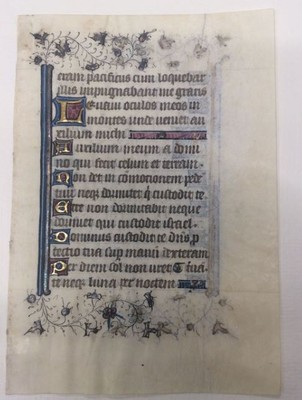 eram pacificus cum loquebar
illis impugnabant me gratis
Levavi oculos meos in
montes unde veniet au
xilium michi
Auxilium meum a domi
no qui fecit celum et terram.
Non det in comotionem pede
tuu neqz dormitet q custodit te.
Ecce non dormitabit neque
dormiet qui custodit israel.
Dominus custodit te dns p
tectio tua sup manu dexteram
Per diem sol non uret te
neqz luna per noctem